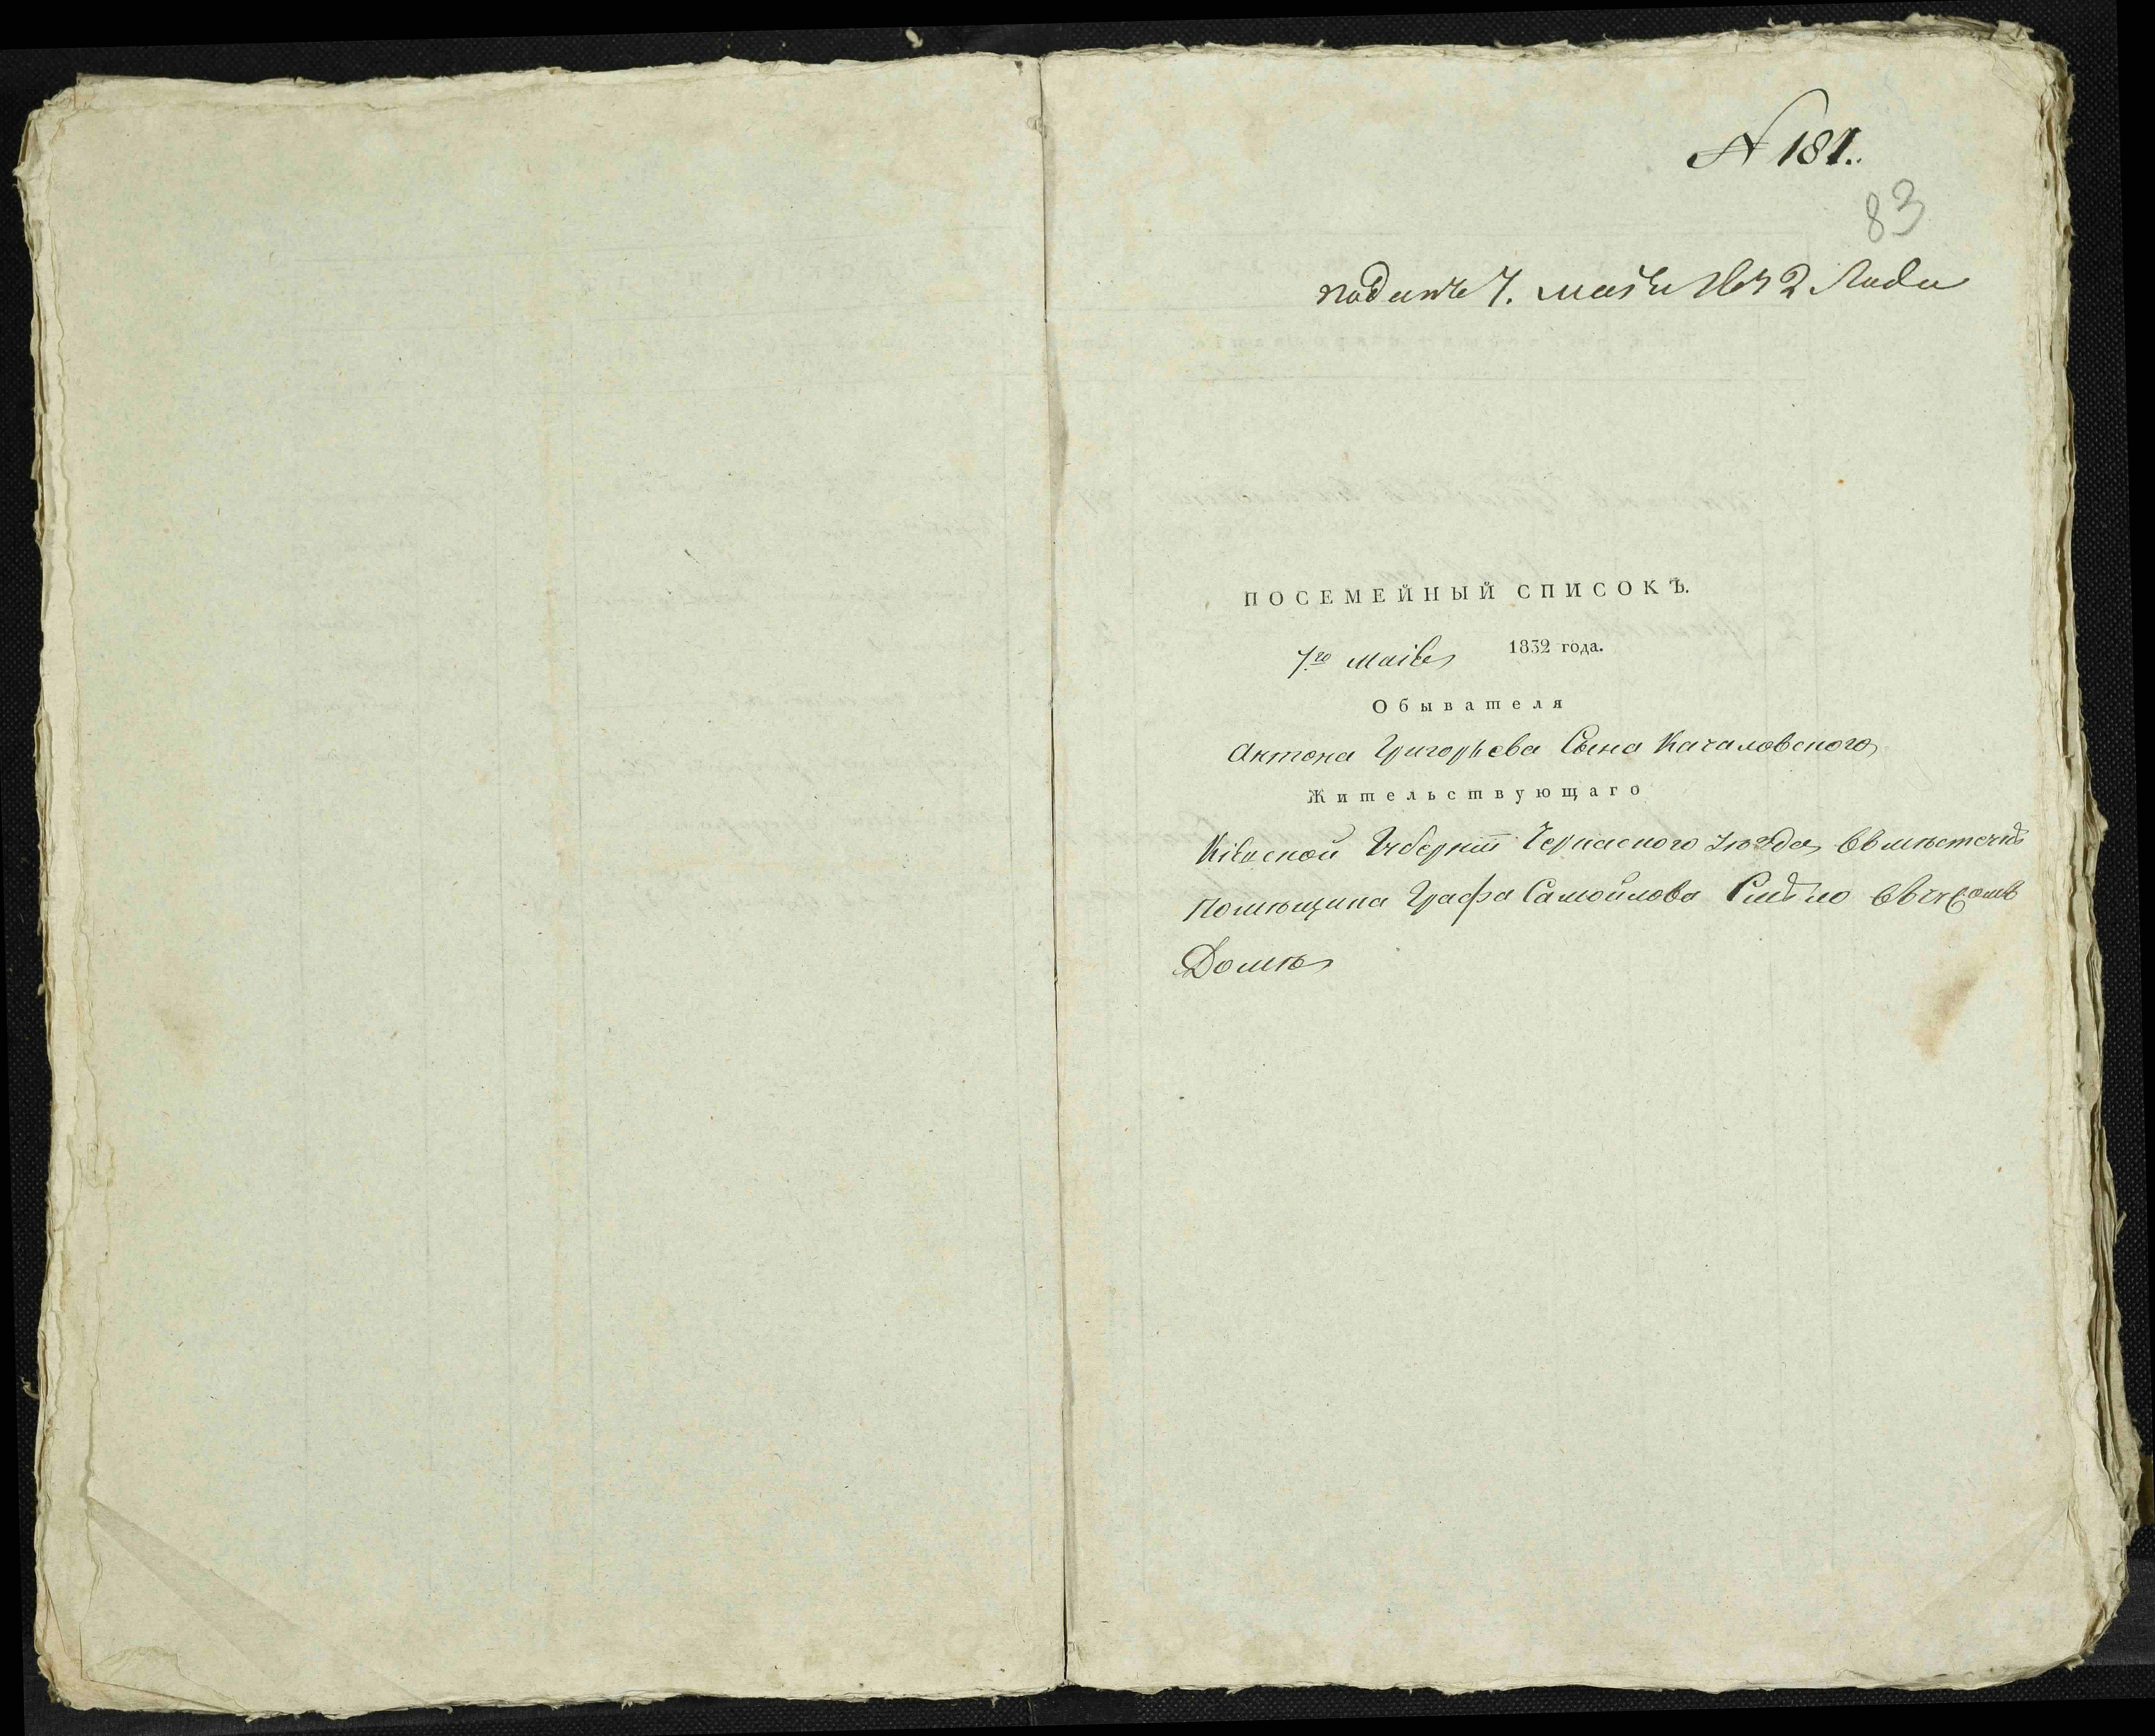 N 181.
83
поданъ 7. маія 1832 Года
ПОСЕМЕЙНЫЙ СПИСОКЪ.
7го маія 1832 года.
Обывателя
Антона Григорьева Сына Качаловского
Жительствующаго
Кіевской Губерніи Черкаского уѣзда ввмѣстечкѣ
Помѣщика Графа Самойлова Смѣло
Домѣ